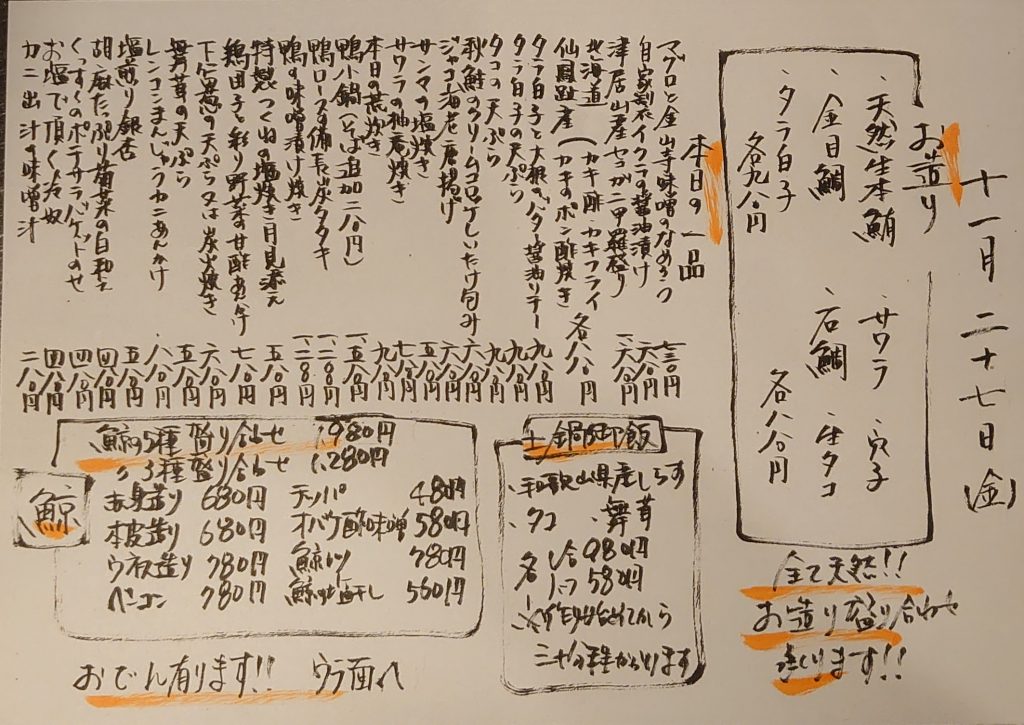 十一月二十七日(金)
お造り
・天然生本鮪 ・サワラ ・穴子
・金目鯛 ・石鯛 ・生タコ
・タラ白子 各八八〇円
各九八〇円
全て天然!!
お造り盛り合わせ
造ります!!
本日の一品
マグロと金山寺味噌のなめろう 七三〇円
自家製イクラの醤油漬け 六八〇円
津居山産セコガニ甲羅盛り 一、六八〇円
北海道(カキ酢 カキフライ
仙鳳趾産(カキのポン酢焼き 各八八〇円
タラ白子と大根のバター醤油ソテー 九八〇円
タラ白子の天ぷら 九八〇円
タコの天ぷら 八八〇円
秋鮭のクリームコロッケしいたけ包み 六八〇円
ジャコ海老唐揚げ 六八〇円
サンマの塩焼き 五八〇円
サワラの柚庵焼き 七八〇円
本日の荒炊き 九八〇円
鴨小鍋(そば追加二八〇円) 一、五八〇円
鴨ロースの備長炭タタキ 一、二八〇円
鴨の味噌漬け焼き 一、二八〇円
特製つくねの塩焼き月見添え 五八〇円
鶏団子と彩り野菜の甘酢あんかけ 七八〇円
下仁田葱の天ぷら又は炭火焼き 六八〇円
舞茸の天ぷら 五八〇円
レンコンまんじゅうカニあんかけ 八八〇円
塩煎り銀杏 五八〇円
胡麻たっぷり菊菜の白和え 四八〇円
くっすくのポテサラバゲットのせ 四八〇円
お塩で頂く冷奴 四八〇円
カニ出汁の味噌汁 二八〇円
土鍋御飯
・和歌山県産しらす
・タコ ・舞茸
各 1合 980円
1/2 580円
鯨
鯨5種盛り合わせ 1,980円
〃3種盛り合わせ 1,280円
赤身造り 680円 テッパ 480円
本皮造り 680円 オバケ酢味噌 580円
ウネス造り 780円 鯨カツ 780円
ベーコン 780円 鯨の塩干し 560円
おでん有ります!! ウラ面へ